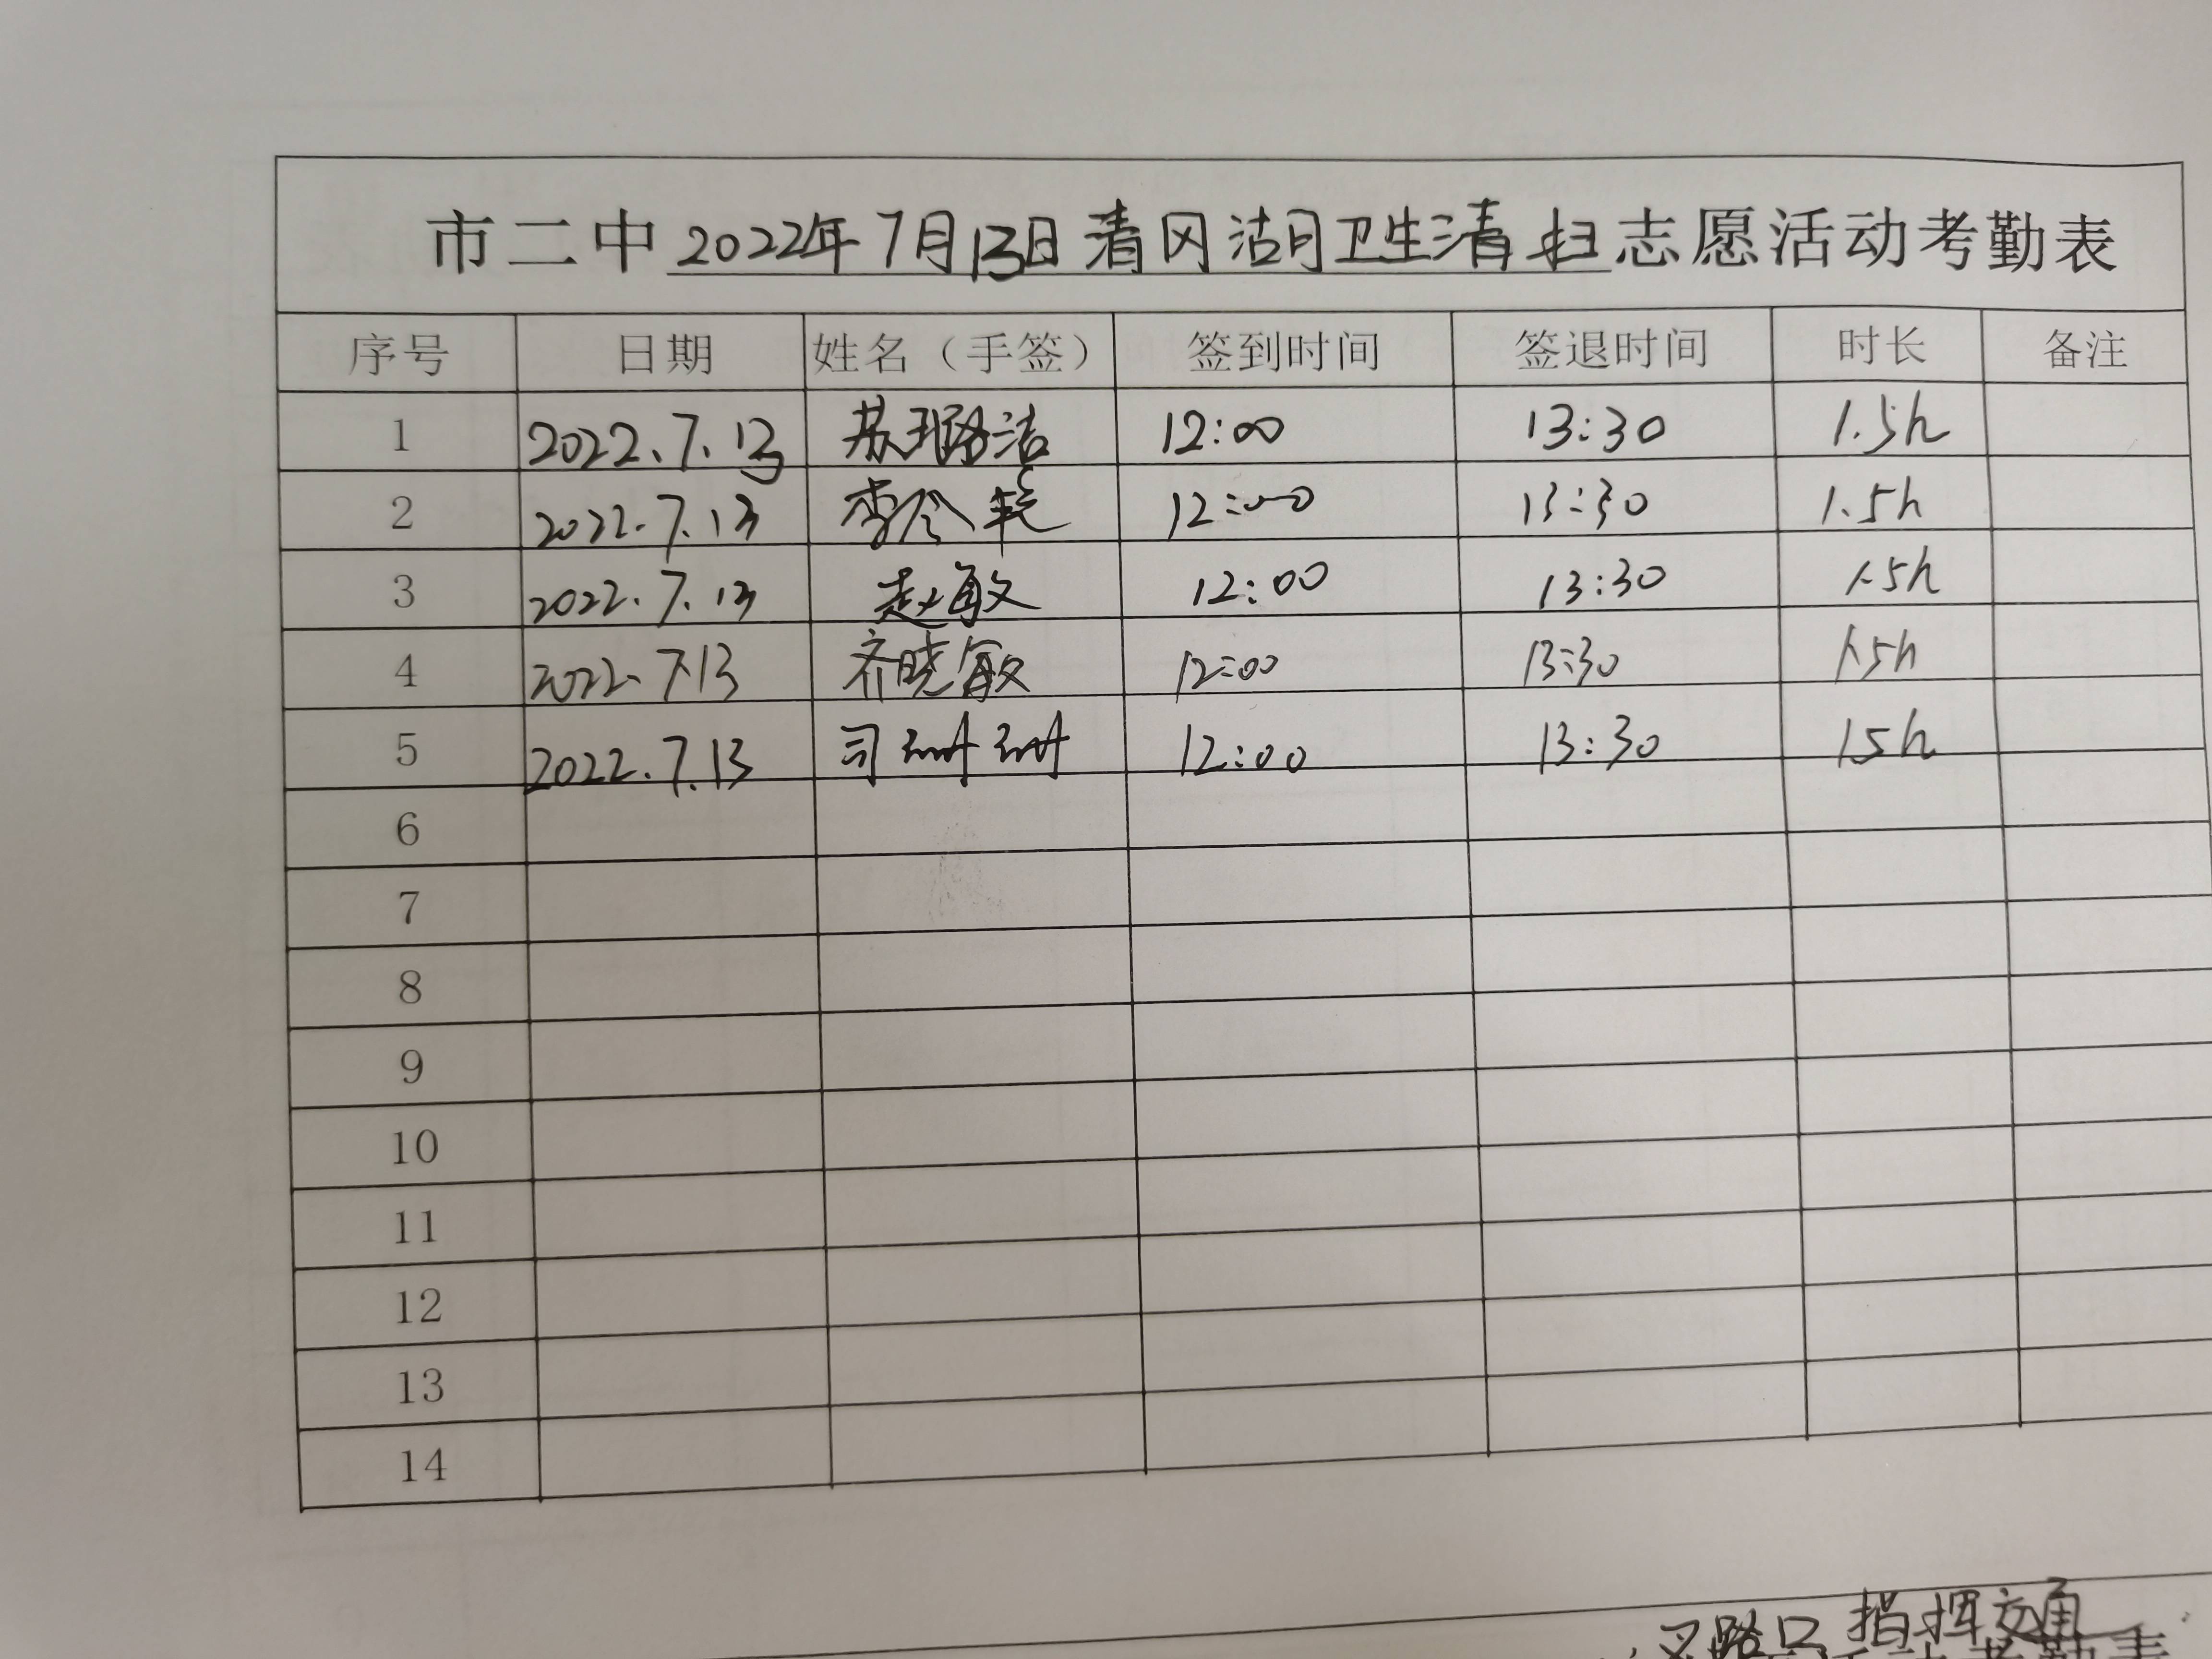 市二中2022年7月13日清冈湖卫生清扫志愿活动考勤表
序号 日期 姓名（手签） 签到时间 签退时间 时长 备注
1 2022.7.13 苏璐洁 12:00 13:30 1.5h
2 2022.7.13 李令艳 12:00 13:30 1.5h
3 2022.7.13 赵敏 12:00 13:30 1.5h
4 2022.7.13 齐晓敏 12:00 13:30 1.5h
5 2022.7.13 司珊珊 12:00 13:30 1.5h
6
7
8
9
10
11
12
13
14
叉路口指挥交通
活动考勤表